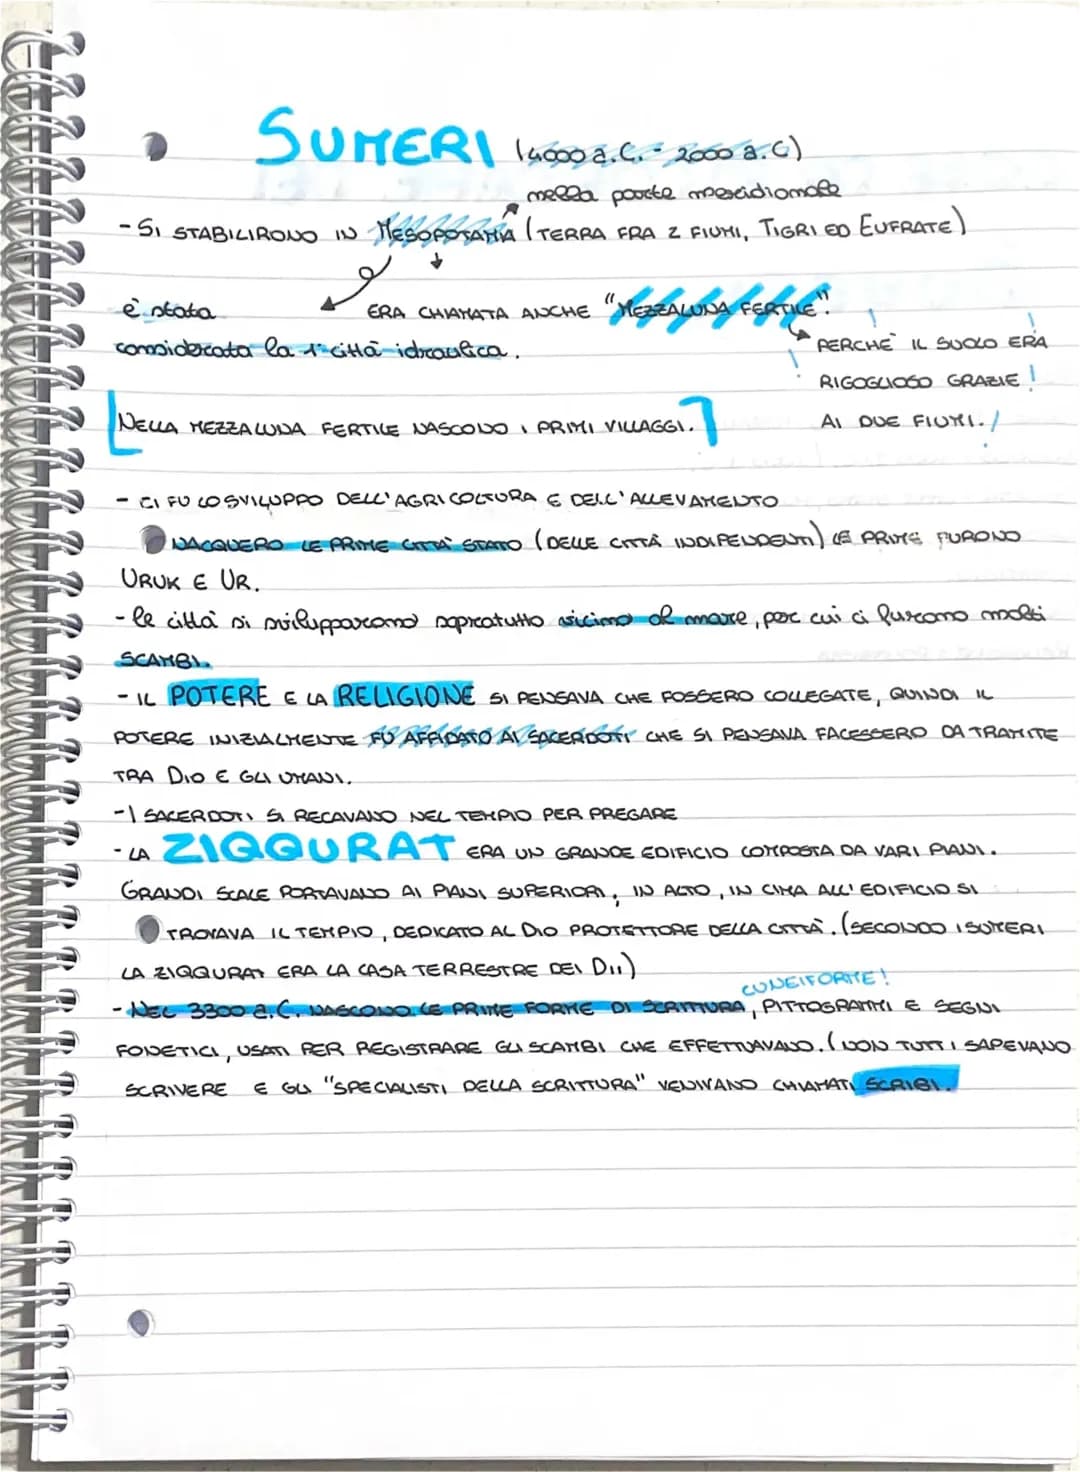 SUMERI (4000 a.C. - 2000 a.C)
nella parte meridionale
- SI STABILIRONO IN MESOPOTAMIA (TERRA FRA 2 FIUMI, TIGRI ED EUFRATE)
è stata
ERA CHIAMATA ANCHE "MEZZALUNA FERTILE".
considerata la 1° città idraulica.
PERCHÉ IL SUOLO ERA
RIGOGLIOSO GRAZIE
AI DUE FIUMI.
[NELLA MEZZALUNA FERTILE NASCONO I PRIMI VILLAGGI.]
- CI FU LO SVILUPPO DELL'AGRICOLTURA E DELL'ALLEVAMENTO
NACQUERO LE PRIME CITTÀ STATO (DELLE CITTÀ INDIPENDENTI) LE PRIME FURONO
URUK E UR.
- le città si svilupparono sopratutto vicino al mare, per cui ci furono molti
SCAMBI.
- IL POTERE E LA RELIGIONE SI PENSAVA CHE FOSSERO COLLEGATE, QUINDI IL
POTERE INIZIALMENTE FU AFFIDATO AI SACERDOTI CHE SI PENSAVA FACESSERO DA TRAMITE
TRA DIO E GLI UMANI.
- I SACERDOTI SI RECAVANO NEL TEMPIO PER PREGARE
- LA ZIQQURAT ERA UN GRANDE EDIFICIO COMPOSTA DA VARI PIANI.
GRANDI SCALE PORTAVANO AI PIANI SUPERIORI, IN ALTO, IN CIMA ALL'EDIFICIO SI
TROVAVA IL TEMPIO, DEDICATO AL DIO PROTETTORE DELLA CITTÀ. (SECONDO I SUMERI
LA ZIQQURAT ERA LA CASA TERRESTRE DEI DII)
CUNEIFORME!
- NEL 3300 a.C. NASCONO LE PRIME FORME DI SCRITTURA, PITTOGRAMMI E SEGNI
FONETICI, USATI PER REGISTRARE GLI SCAMBI CHE EFFETTUAVANO. (NON TUTTI SAPEVANO
SCRIVERE E GLI "SPECIALISTI DELLA SCRITTURA" VENIVANO CHIAMATI SCRIBI.